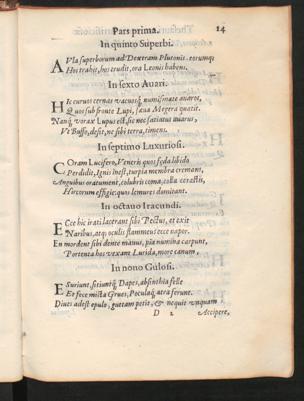 Pars prima. 14
In quinto Superbi.
AVla superborum ad Dextram Plutonis. eorumq;
Hos trahit, hos trudit, ora Leonis habens.
In sexto Auari.
HIc curuos cernas vacuosq; numismate auaros,
Quos sub fronte Lupi, sæua Megera quatit.
Nanq; vorax Lupus est, sic nec satiatur auarus,
Vt Buffo, desit, ne sibi terra, timens.
In septimo Luxuriosi.
COram Lucifero, Veneris quos fęda libido
Perdidit, Ignis inest, turpia membra cremans,
Anguibus ora tument, colubris coma, colla cerastis,
Hircorum effigie quos lemures domitant.
In octauo Iracundi.
ECce hic irati lacerant sibi Pectus, et exit
Naribus, atq; oculis flammeus ecce vapor.
En mordent sibi dente manus, pia numina carpunt,
Portenta hos vexant Lurida, more canum,
In nono Gulosi.
ESuriunt, sitiuntq; Dapes, absinthia felle
Et fece mista Grues, Poculaq; atra ferunt.
Diues adest epulo, guttam petit, & nequit vnquam
D 2 Accipere,